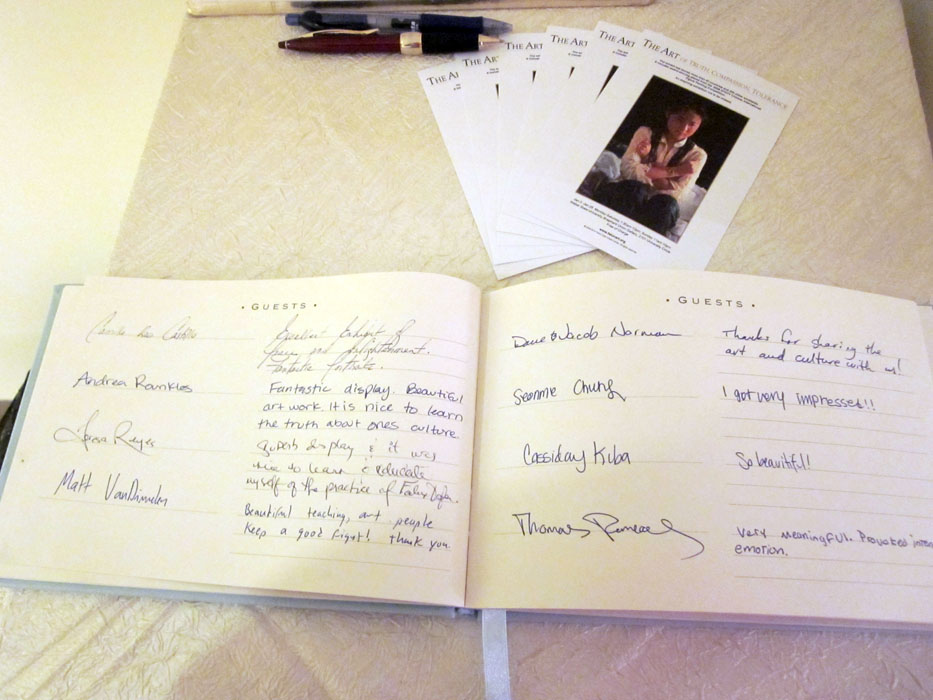 THE AR
THE ART
THE ART
THE ART
THE ART
THE ART OF TRUTH COMPASSION TOLERANCE
• GUESTS •
Excellent Exhibit of
and Enlightenment.
Fantastic Portraits.
Andrea Rankles
Fantastic display. Beautiful
art work. It is nice to learn
the truth about ones culture.
Teresa Reyes
Superb display & it was
nice to learn & educate
myself of the practice of Falun Dafa.
Matt
Beautiful teaching, art people
keep a good fight! Thank you
• GUESTS •
Dave & Jacob Norman
Thanks for sharing the
art and culture with us!
Seonmie Chung
I got very impresses!!
Cassiday Kuba
So beautiful!
Thomas
Very meaningful. Provoked
emotion.